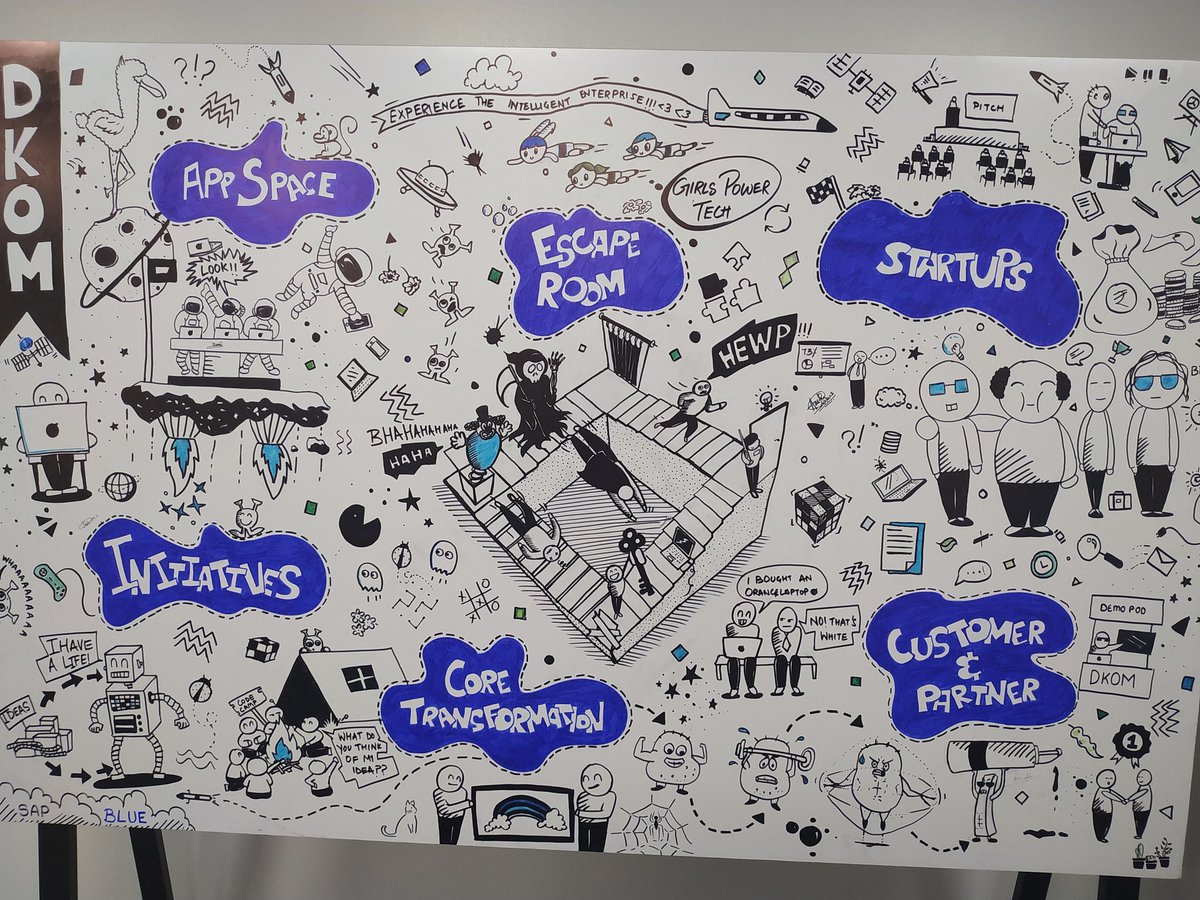 DKOM
?!?
EXPERIENCE THE INTELLIGENT ENTERPRISE!!! <3 <3
PITCH
APP SPACE
GIRLS POWER
TECH
ESCAPE
ROOM
STARTUPS
LOOK!!
HEWP!!!
BHAHAHAHAHA
HAHA
?!
INITIATIVES
WHAAAAAAAAA
I BOUGHT AN
ORANGE LAPTOP
NO! THAT'S
WHITE
CUSTOMER
&
PARTNER
DEMO POD
DKOM
I HAVE
A LIFE!
IDEAS
CODE
CAMP
CORE
TRANSFORMATION
WHAT DO
YOU THINK
OF MY
IDEA??
1
SAP
BLUE